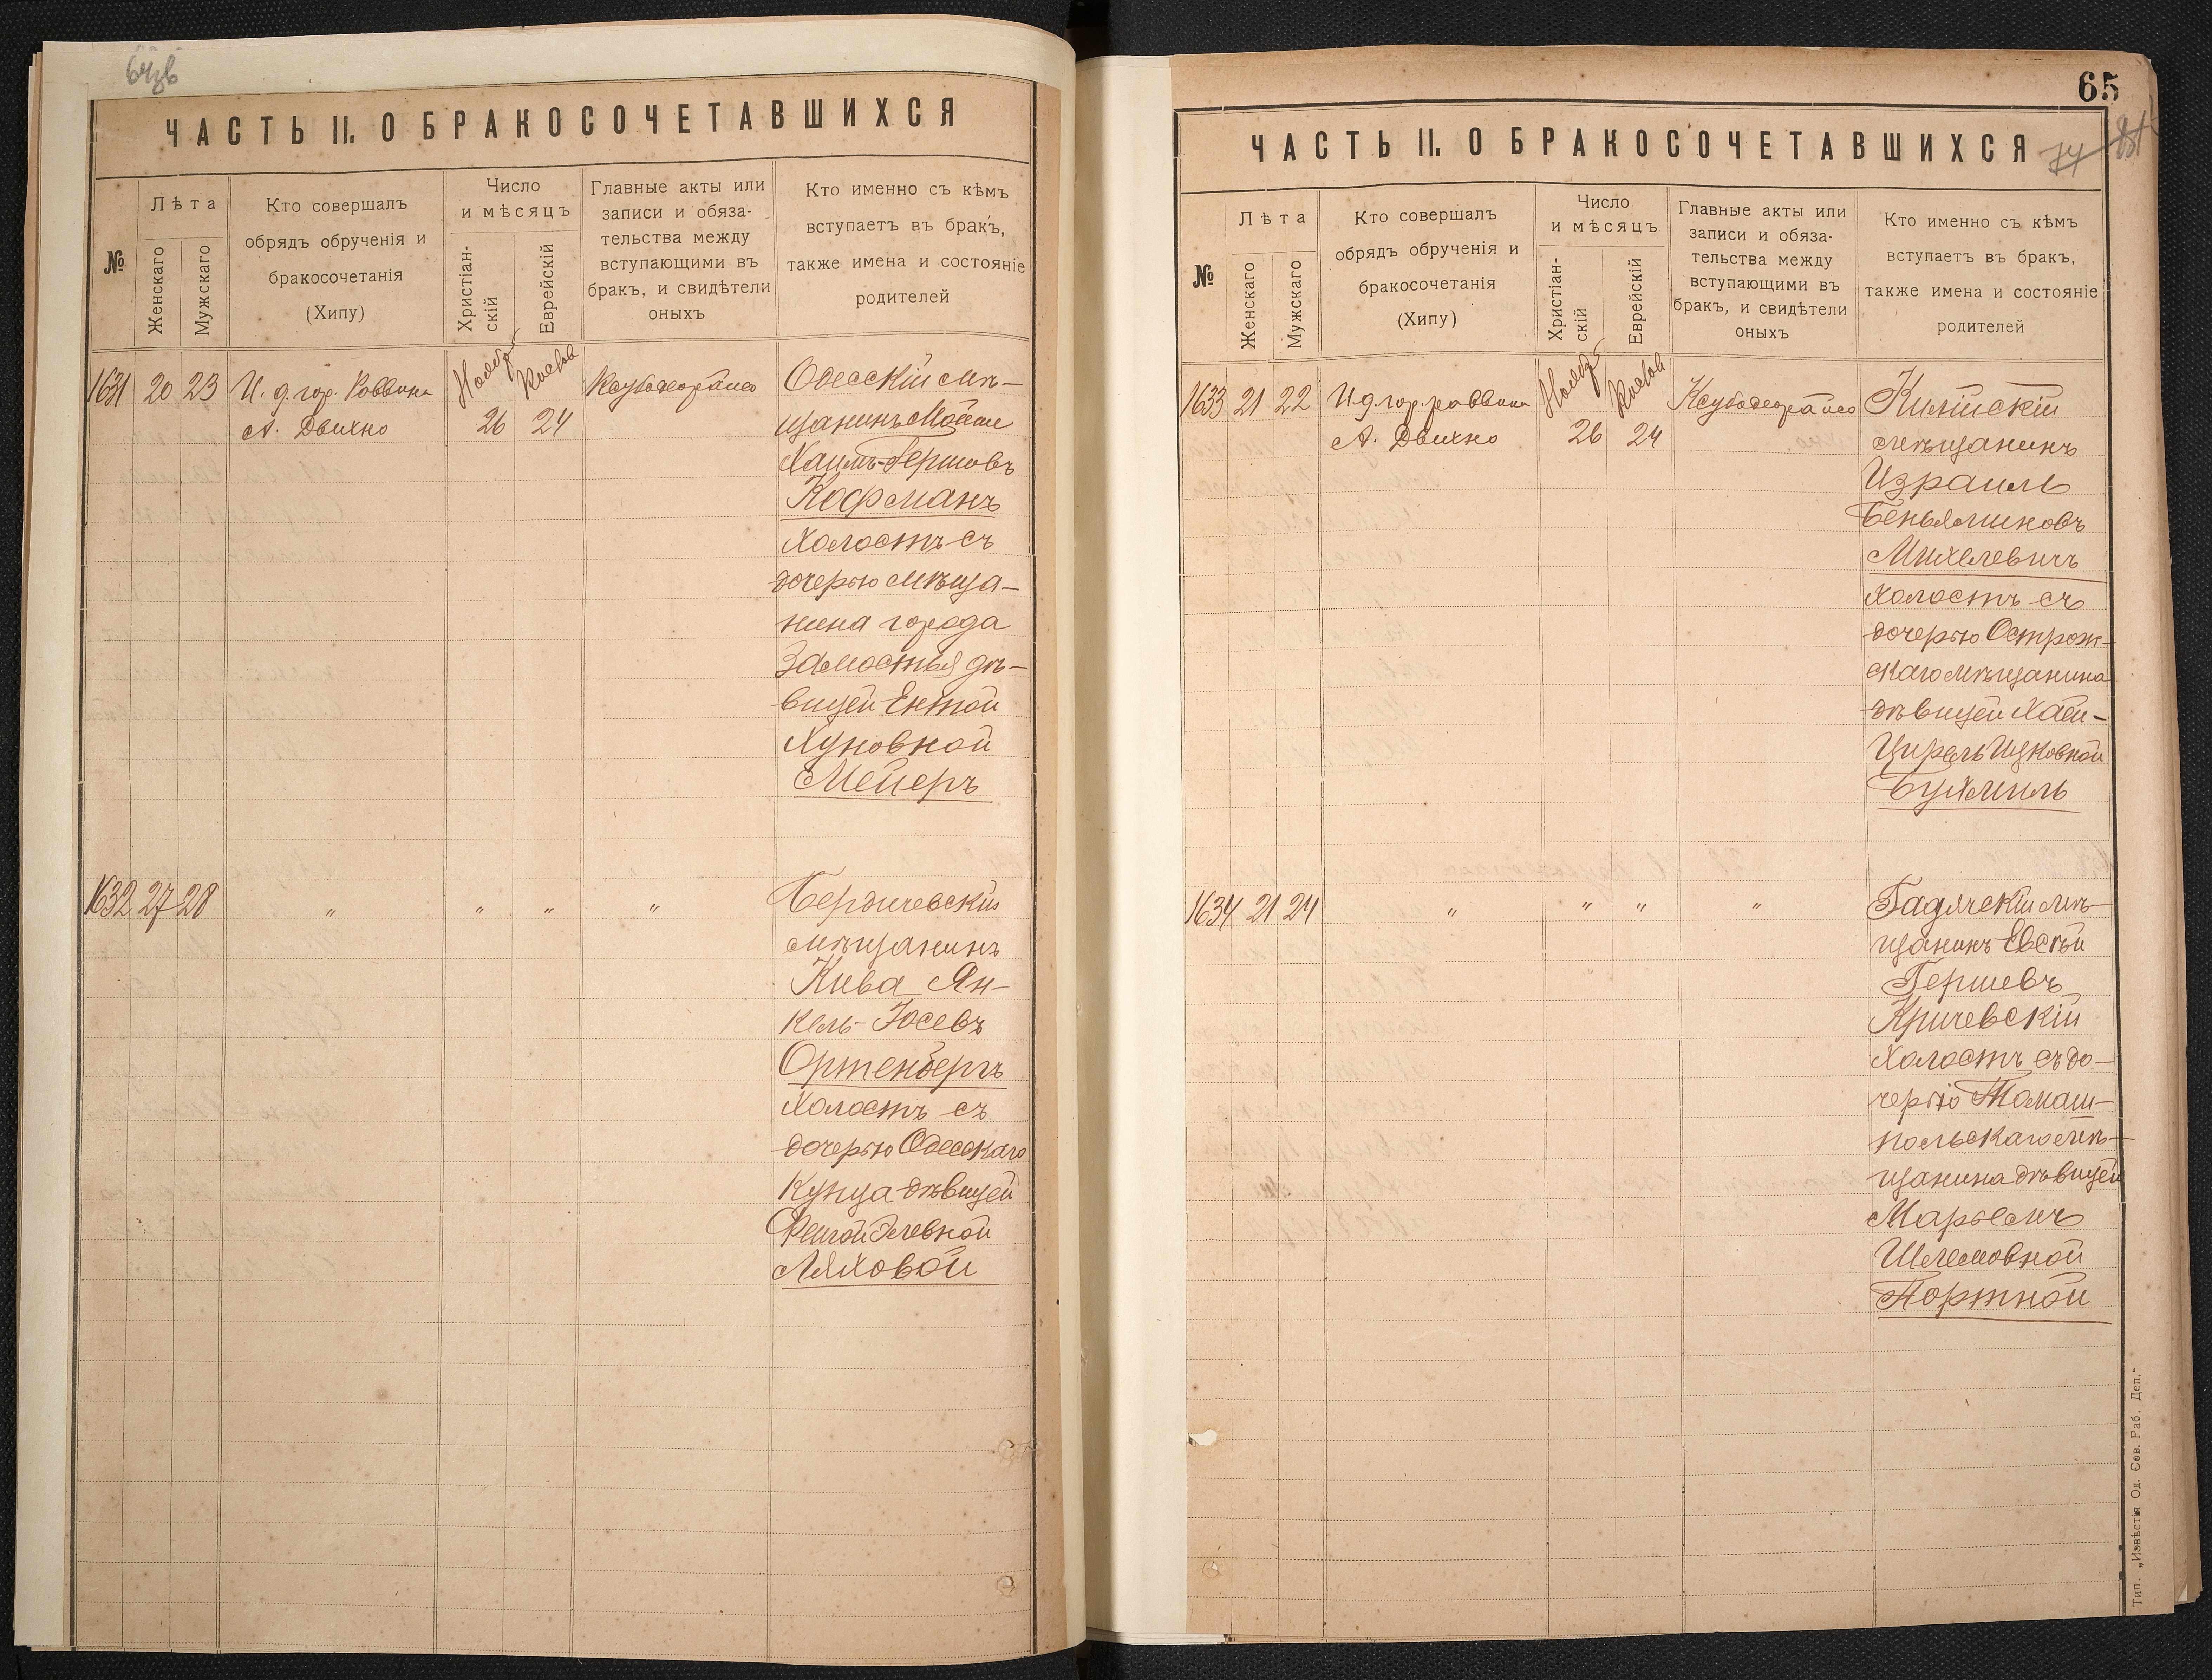 ЧАСТЬ II. О БРАКОСОЧЕТАВШИХСЯ
№
Лѣта
Женскаго
Мужскаго
Кто совершалъ
обрядъ обрученія и
бракосочетанія
(Хипу)
Число
и мѣсяцъ
Христіан-
скій
Еврейскій
Главные акты или
записи и обяза-
тельства между
вступающими въ
бракъ, и свидѣтели
оныхъ
Кто именно съ кѣмъ
вступаетъ въ бракъ,
также имена и состояніе
родителей
1631 20 23 И. д. гор. Раввина
А. Двихно
Ноябр
26
24
Одесскій мѣ-
щанинъ
Хаимъ-Гершовъ
Кофманъ
холостъ съ
дочерью мѣща-
нина города
Замостья дѣ-
вицей Ентой
Хуновной
Мейеръ
1632 27 28 " " " "
Бердичевскій
мѣщанинъ
Кива Ян-
кель-Юсевъ
Ортенбергъ
холостъ съ
дочерью Одесскаго
купца дѣвицей
Фейгой
Ляховой
65
74
ЧАСТЬ II. О БРАКОСОЧЕТАВШИХСЯ
№
Лѣта
Женскаго
Мужскаго
Кто совершалъ
обрядъ обрученія и
бракосочетанія
(Хипу)
Число
и мѣсяцъ
Христіан-
скій
Еврейскій
Главные акты или
записи и обяза-
тельства между
вступающими въ
бракъ, и свидѣтели
оныхъ
Кто именно съ кѣмъ
вступаетъ въ бракъ,
также имена и состояніе
родителей
1633 21 22 И. д. гор. раввина
А. Двихно
Ноябр
26
24
Килійскій
мѣщанинъ
Израиль
Беньяминовъ
Михелевичъ
холостъ съ
дочерью Острож-
скаго мѣщанина
дѣвицей Хай-
Цирель Ицковной
Бухмиль
1634 21 24 " " " "
Гадячскій мѣ-
щанинъ Евсѣй
Гершевъ
Кричевскій
холостъ съ до-
черью Томаш-
польскаго мѣ-
щанина дѣвицей
Марьемъ
Шлемовной
Портной
Тип. „Извѣстія Од. Сов. Раб. Деп."